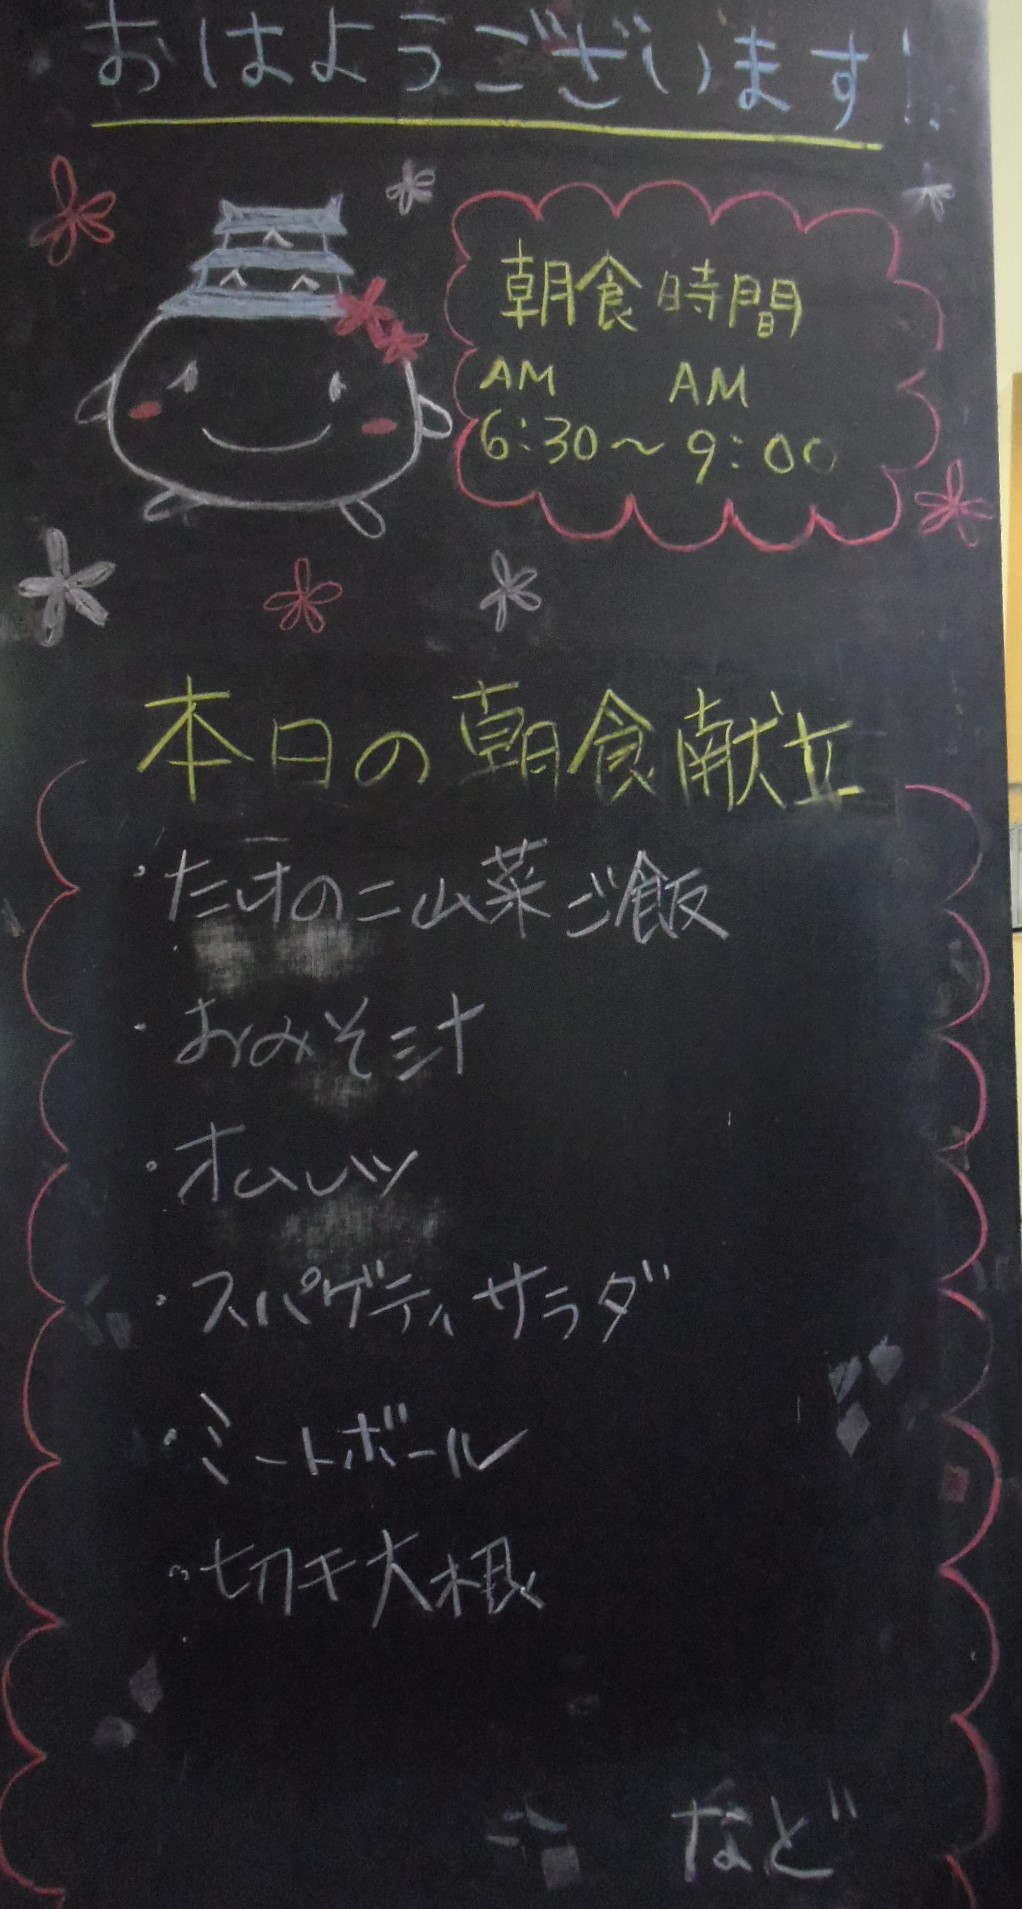 おはようございます!!
朝食時間
AM AM
6:30〜9:00
本日の朝食献立
・たけのこ山菜ご飯
・おみそ汁
・オムレツ
・スパゲティサラダ
・ミートボール
・切干大根
など